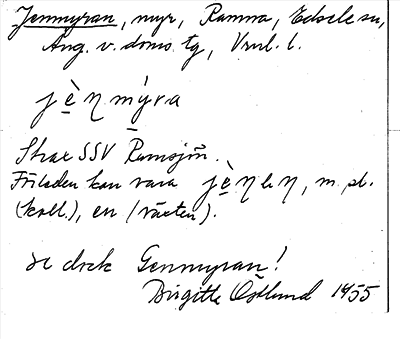 Jenmyran, myr, Ramma, Edsele sn,
Ång. v. doms. tg, Vnrl. l.
jὲŋmýra
Strax SSV Ramsjön.
Förleden kan vara jὲŋɛŋ, m. pl.
(koll.), en (växten).
se dock Genmyran!
Birgitta Östlund 1955